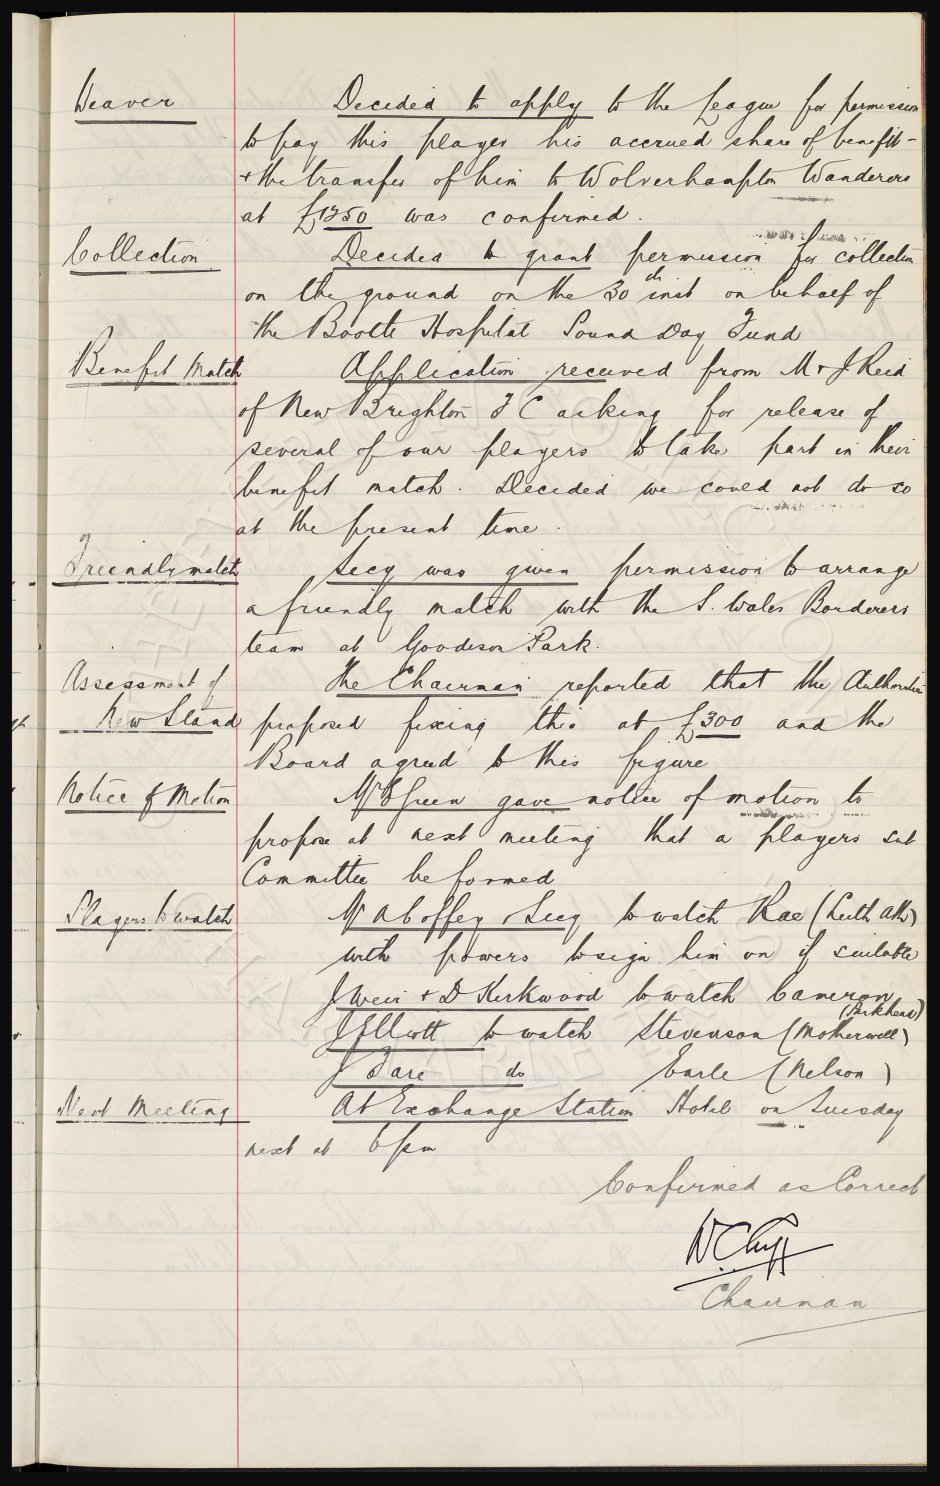 Weaver
Decided to apply to the League for permission
to pay this player his accrued share of benefit -
+ the transfer of him to Wolverhampton Wanderers
at £1250 was confirmed.
Collection
Decided to grant permission for collection
on the ground on the 30th inst on behalf of
the Bootle Hospital Pound Day Fund
Benefit Match
Application received from Mr J Reid
of New Brighton F C asking for release of
several of our players to take part in their
benefit match. Decided we could not do so
at the present time.
Friendly match
Secy was given permission to arrange
a friendly match with the S. Wales Borderers
team at Goodison Park.
Assessment of
New Stand
The Chairman reported that the Authorities
proposed fixing this at £300 and the
Board agreed to this figure
Notice of Motion
Mr E Green gave notice of motion to
propose at next meeting that a players sub
Committee be formed
Players to watch
Mr A Coffey + Secy to watch Rae (Leith Ath)
with powers to sign him on if suitable
J Weir + D Kirkwood to watch Cameron
(Parkhead)
J Elliott to watch Stevenson (Motherwell)
J Fare do Earle (Nelson)
Next Meeting
At Exchange Station Hotel on Tuesday
next at 6 pm
Confirmed as Correct
W C Cuff
Chairman